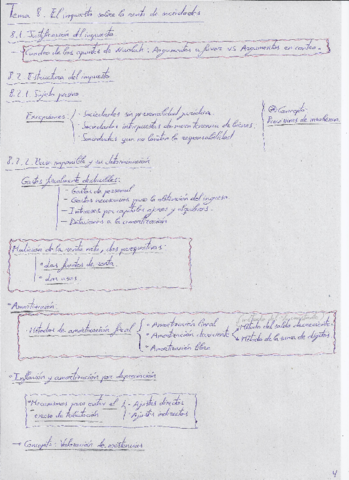 Tema 8. El impuesto sobre la renta de sociedades
8.1. Justificación del impuesto
Cuadro de los apuntes de : Argumentos a favor vs Argumentos en contra.
8.2. Estructura del impuesto
8.2.1. Sujeto pasivo
Excepciones
- Sociedades sin personalidad jurídica
- Sociedades interpuestas de mera tenencia de bienes.
- Sociedades que no limitan la responsabilidad
Concepto
8.2.2. Base imponible y su determinación
Gastos fiscalmente deducibles:
- Gastos de personal
- Gastos necesarios para la obtención del ingreso
- Intereses por capitales ajenos y alquileres.
- Dotaciones a la amortización
Medición de la renta neta, dos perspectivas:
- Las fuentes de renta
- Los usos.
- Amortización:
Métodos de amortización fiscal
- Amortización lineal
- Amortización decreciente
- Amortización libre
Método del saldo decreciente
Método de la suma de dígitos
- Inflación y amortización por depreciación
Mecanismos para evitar el exceso de tributación
- Ajustes directos
- Ajustes indirectos
→ Concepto: Valoración de existencias
4